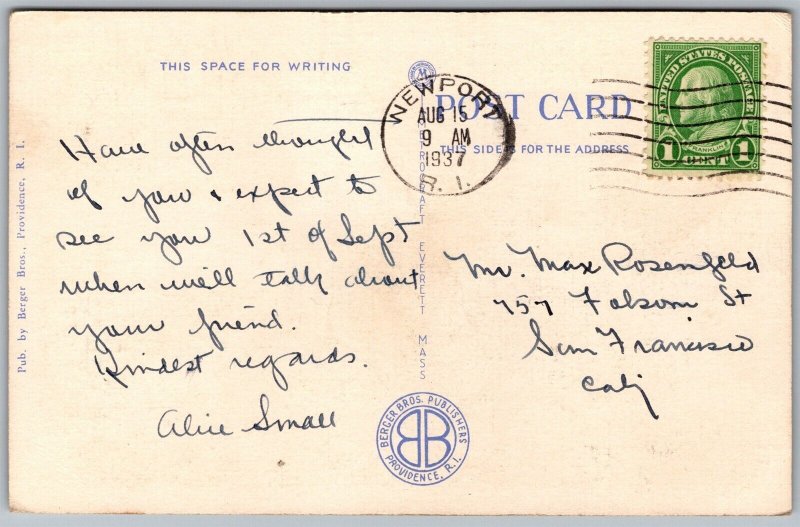 THIS SPACE FOR WRITING
Have often thought
of you & expect to
see you 1st of Sept
when we'll talk about
your friend.
Kindest regards.
Alice Small
Pub. by Berger Bros., Providence, R. I.
METROCRAFT EVERETT MASS
BERGER BROS. PUBLISHERS
BB
PROVIDENCE, R.I.
NEWPORT
AUG 15
9 AM
1937
R. I.
POST CARD
THIS SIDE IS FOR THE ADDRESS
UNITED STATES POSTAGE
FRANKLIN
1 CENT 1
Mr. Max Rosenfeld
757 Folsom St
San Francisco
Calif